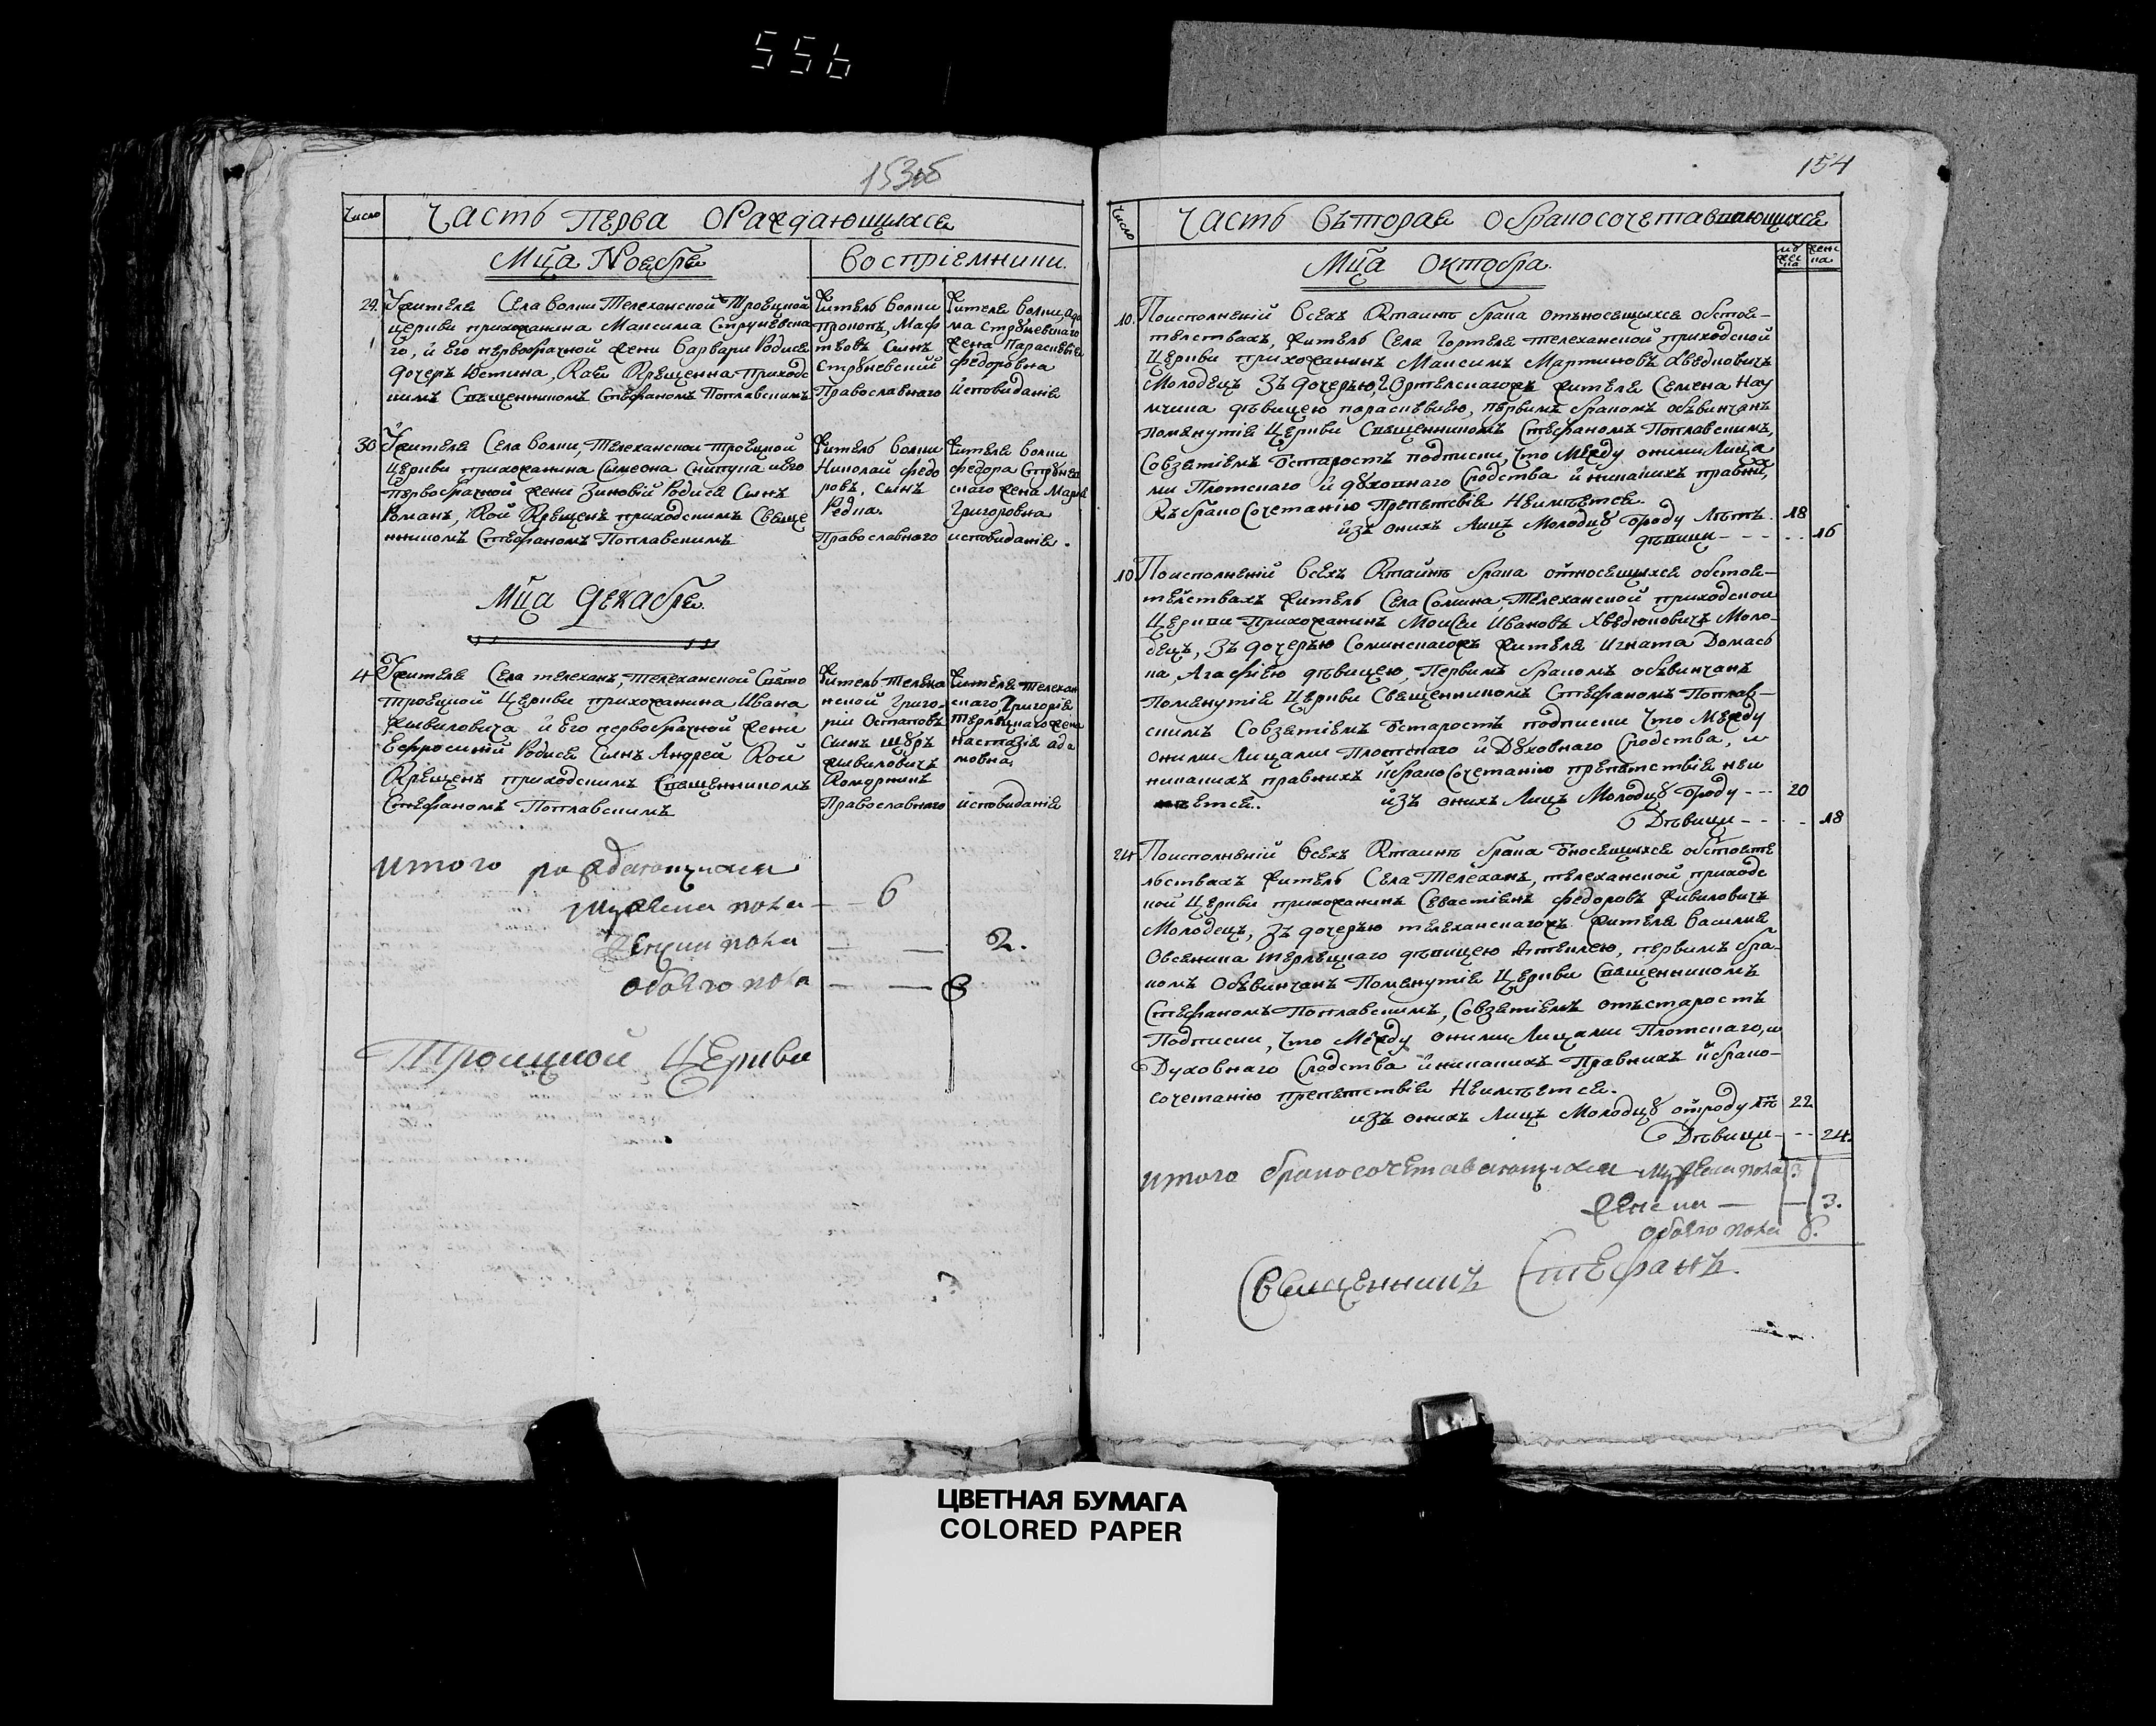 556
153об
Число Часть перва о раждающихся
Мца Ноября Воспріемники
29. Жителя Села Волки Телеханской Троецкой
церкви прихожанина Максима Струневска
го, и его первобрачной жени Варвари Родися
дочеръ Юстина, Кая Крещенна Приходс
кимъ Священникомъ Стефаномъ Поплавскимъ
Житель Волки
Прокопъ, Маф
теевъ Сынъ
Струневскій
Православнаго
Жителя Волки, Ада
ма Струневскаго
жена Парасковія
Федоровна
Исповиданія
30 Жителя Села Волки, Телеханской Троецкой
Церкви прихожанина Симеона Скипуна и его
первобрачной жени Зиновіи Родися Сынъ
Романъ, Кой Крещенъ приходскимъ Свяще
нникомъ Стефаномъ Поплавскимъ
Житель Волки
Николай Федо
ровъ, Сынъ
Редка.
Православнаго
Жителя Волки
Федора Струнев
скаго жена Марія
Григоровна
исповиданія.
Мца Декабря
4 Жителя Села Телеханъ, Телеханской Свято
Троецкой Церкви прихожанина Ивана
Живиловича и Его первобрачной жени
Ефросиніи Родися Сынъ Андрей Кой
Крещенъ приходскимъ Священникомъ
Стефаномъ Поплавскимъ
Житель Телеха
нской Григо
рій Остаповъ
Сынъ Щуръ
Живиловичъ
Коморникъ
Православнаго
Жителя Телехан
скаго Григорія
Терлецкаго жена
Настазія Ада
мовна,
исповиданія
итого раждающихся
мужеска пола — — 6
женска пола — — 2.
обоего пола — — 8
Троицкой Церкви
154
Число Часть въторая о бракосочетавающихся
Мца Октобра.
муж
жес
ка
женс
ка
10. Поисполненій Всехъ Ктаинъ брака отъносящихся обстоя-
телствахъ, житель Села Гортеля Телеханской приходской
Церкви прихожанинъ Максимъ Мартиновъ Хведковичъ
Молодецъ Зъ дочерью, Гортелскагожъ жителя Семена Нау
мчика дѣвицею параскѣвиею, первимъ бракомъ обѣвинчанъ
Помянутія Церкви Священникомъ Стефаномъ Поплавскимъ,
Совзятіемъ отстаростъ подписки Что Между оними Лица
ми Плотскаго й духовнаго Сродства й никакихъ правних
Къ брако Сочетанію Препятсвія Неимеется
изъ онихъ Лицъ Молодцу отроду Лѣтъ. 18
дѣвици - - - . . 16
10 Поисполненій Всехъ Ктаинъ брака относящихся обстоя-
телствахъ житель Села Сомина, Телеханской приходской
Церкви Прихожанинъ Моисеи Ивановъ Хведюковичъ Моло-
децъ, Зъ дочерью Соминскагожъ жителя Игната Домась
ка, Агафіею дѣвицею, Первимъ бракомъ обѣвинчанъ
Помянутія Церкви Священникомъ Стефаномъ Поплав-
скимъ Совзятіемъ отстаростъ подписки Что Между
оними Лицами Плотскаго й Духовнаго Сродства, и
никакихъ правнихъ йбрако Сочетанію препятствія неи
мѣется. изъ онихъ Лицъ Молодцу отроду - - - 20
Дѣвици - - - 18
24 Поисполненій Всехъ Ктаинъ брака относящихся обстояте
льствахъ житель Села Телеханъ, телеханской приходс
кой Церкви прихожанинъ Севастіянъ Федоровъ Живиловичъ
Молодецъ, Зъ дочерью телеханскагожъ жителя Василия
Овсяника Терлецкаго дѣвицею Акилею, первимъ бра-
комъ Обѣвинчанъ Помянутія Церкви Священникомъ
Стефаномъ Поплавскимъ, Совзятіемъ отъстаростъ
Подписки, Что Между оними Лицами Плотскаго, и
Духовнаго Сродства йникакихъ Правнихъ йбрако-
сочетанію препятствія Неимѣется.
изъ онихъ Лицъ Молодцу отроду лѣтъ 22
Дѣвици - - - 24.
итого бракосочетавающихся мужеска пола 3
женска — — 3.
обоего пола 6.
Священникъ Стефанъ.
ЦВЕТНАЯ БУМАГА
COLORED PAPER